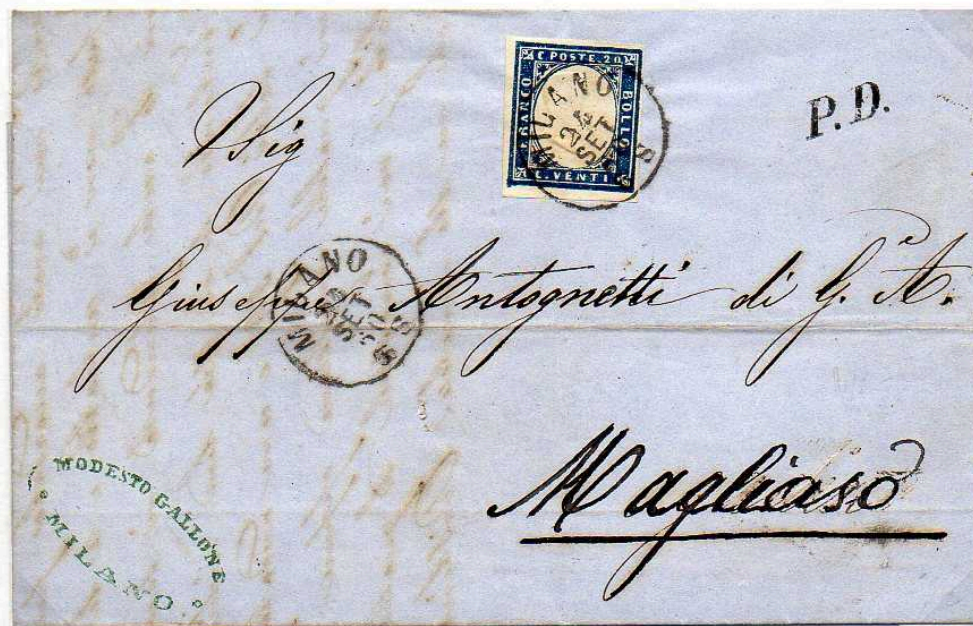 C. POSTE 20
FRANCO
BOLLO
C. VENTI
MILANO
24
SET
P.D.
Sig
Giuseppe Antognetti di G. A.
MILANO
SET
Magliaso
MODESTO GALLONE
MILANO